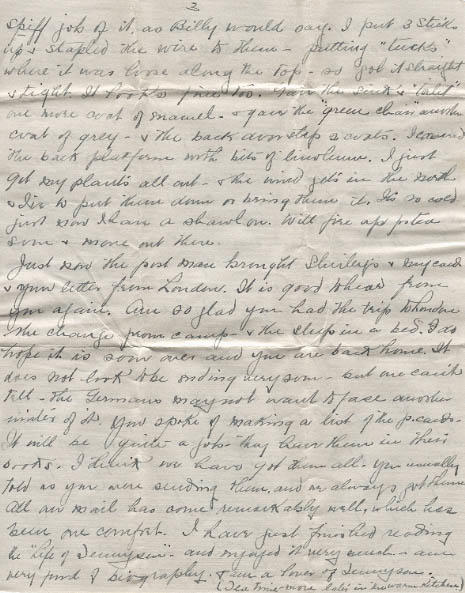 3
spiff job of it, as Billy would say. I put 3 sticks
up & stapled the wire to them - putting "tucks"
where it was loose along the top - so got it straight
& tight. It looks fine too. Gave the sink &
one more coat of enamel - & gave the "green chair" another
coat of grey - & the back door step 2 coats. I covered
the back platform with bits of linoleum. I just
get my plants all out - & the wind gets in the north
& I've to put them down or bring them in. It's so cold
just now I have a shawl on. Will fire up
soon & move out there.
Just now the post man brought Shirley's & my card
& your letter from London. It is good to hear from
you again. Am so glad you had the trip to London
the change from camp - & the sleep in a bed. I do
hope it is soon over and you are back home. It
does not look to be ending very soon - but one can't
tell - the Germans may not want to face another
winter of it. You spoke of making a list of the p.cards.
It will be quite a job - they have them in their
books. I think we have got them all. You usually
told us you were sending them, and we always got them
All our mail has come remarkably well, which has
been one comfort. I have just finished reading
the "Life of Tennyson" - and enjoyed it very much - am
very fond of biography. & am a lover of Tennyson.
(Tea time - more later in warm kitchen)